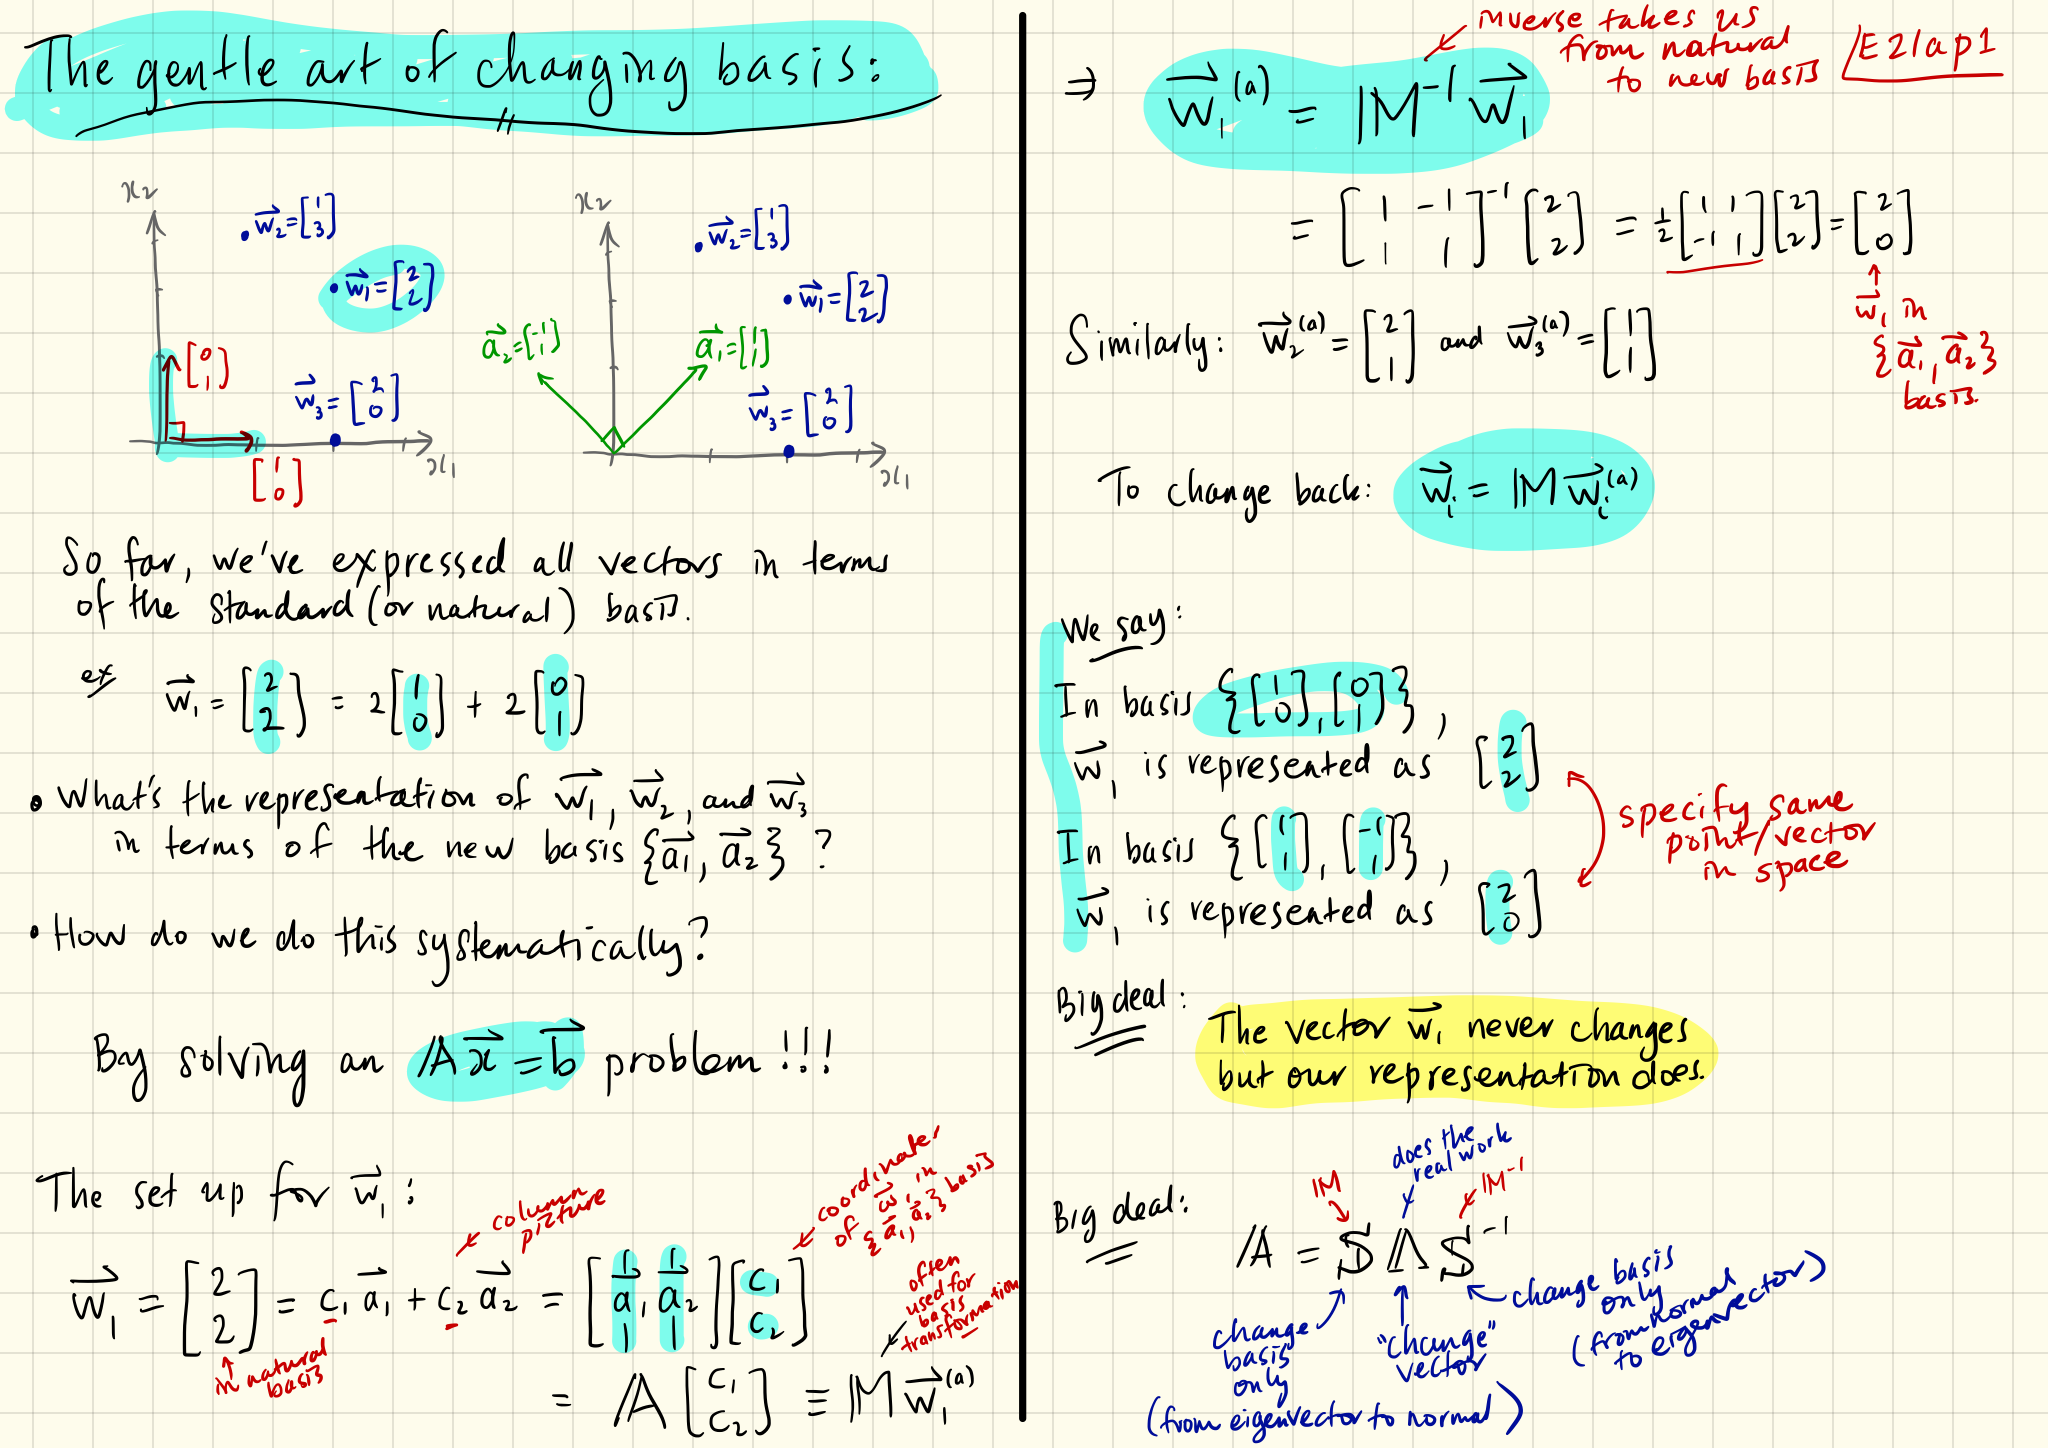 The gentle art of changing basis:
x₂
w⃗₂ = [1 3]
w⃗₁ = [2 2]
[0 1]
w⃗₃ = [2 0]
[1 0]
x₁
x₂
w⃗₂ = [1 3]
w⃗₁ = [2 2]
a⃗₂ = [-1 1]
a⃗₁ = [1 1]
w⃗₃ = [2 0]
x₁
So far, we've expressed all vectors in terms
of the standard (or natural) basis.
ex w⃗₁ = [2 2] = 2[1 0] + 2[0 1]
• What's the representation of w⃗₁, w⃗₂, and w⃗₃
in terms of the new basis {a⃗₁, a⃗₂} ?
• How do we do this systematically?
By solving an 𝔸x⃗ = b⃗ problem !!!
The set up for w⃗₁ :
column
picture
coordinates
of w⃗₁ in
{a⃗₁, a⃗₂} basis
w⃗₁ = [2 2] = c₁a⃗₁ + c₂a⃗₂ = [a⃗₁ a⃗₂][c₁ c₂]
in natural
basis
often
used for
basis
transformation
= 𝔸[c₁ c₂] ≡ 𝕄w⃗₁⁽ᵃ⁾
inverse takes us
from natural
to new basis
E21ap1
⇒ w⃗₁⁽ᵃ⁾ = 𝕄⁻¹ w⃗₁
= [1 -1 1 1]⁻¹ [2 2] = ½[1 1 -1 1][2 2] = [2 0]
w⃗₁ in
{a⃗₁, a⃗₂}
basis.
Similarly: w⃗₂⁽ᵃ⁾ = [2 1] and w⃗₃⁽ᵃ⁾ = [1 1]
To change back: w⃗ᵢ = 𝕄w⃗ᵢ⁽ᵃ⁾
We say:
In basis {[1 0], [0 1]},
w⃗₁ is represented as [2 2]
In basis {[1 1], [-1 1]},
w⃗₁ is represented as [2 0]
specify same
point/vector
in space
Big deal:
The vector w⃗₁ never changes
but our representation does.
Big deal:
𝕄
does the
real work
𝕄⁻¹
𝔸 = 𝕊 Λ 𝕊⁻¹
change
basis
only
(from eigenvector to normal)
"change"
vector
change basis
only
(from normal
to eigenvector)